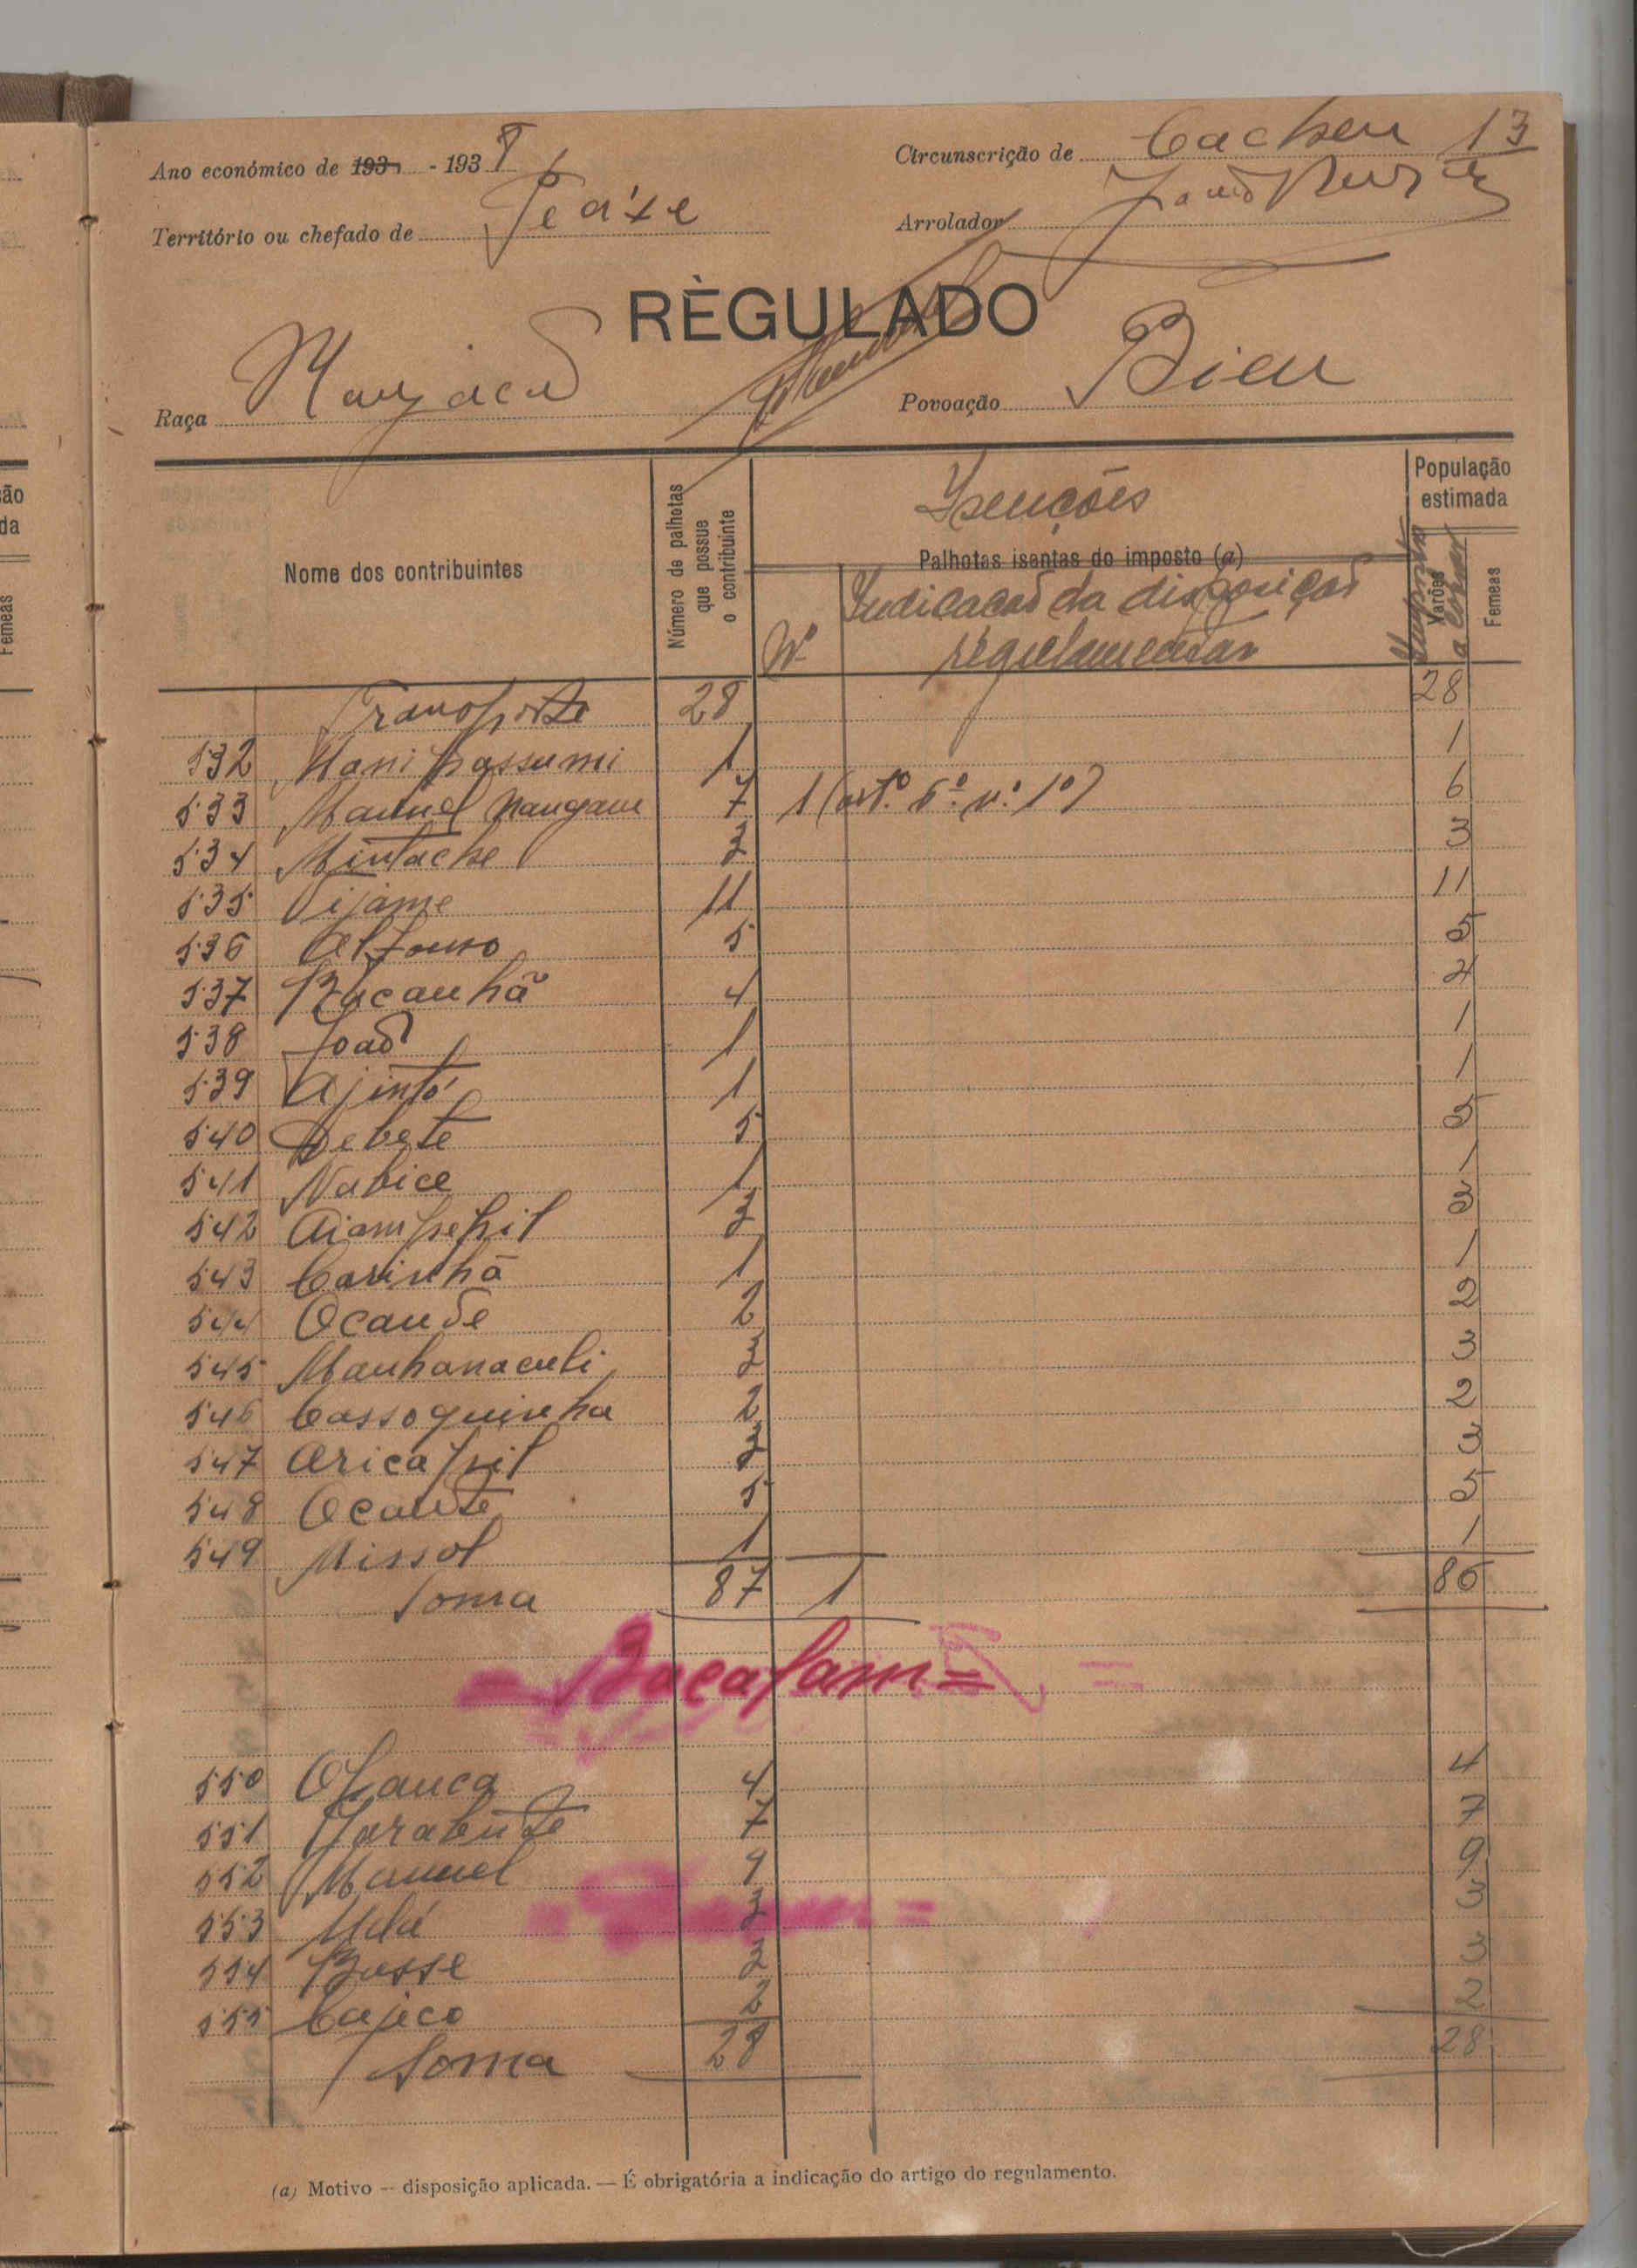 Ano económico de 193 - 1938
Circunscrição de Cacheu 13
Território ou chefado de
Arrolador
RÈGULADO
Raça Manjaca
Povoação Bieu
Nome dos contribuintes
Número de palhotas que possue o contribuinte
Isenções
Palhotas isentas do imposto (a)
Nº
Indicação da disposição regulamentar
População estimada
Varões
a cobrar
Femeas
Transporte 28 28
532 Mani passumi 1 1
533 Manuel Nangane 7 1 (artº. 6º. nº. 1º) 6
534 Mintache 3 3
535 Tijame 11 11
536 Afonso 5 5
537 Bucanhã 4 4
538 João 1 1
539 Ajintó 1 1
540 Debete 5 5
541 Nabice 1 1
542 Aiampepil 3 3
543 Carinhã 1 1
544 Ocande 2 2
545 Manhanaculi 3 3
546 Cassoquinha 2 2
547 Aricapil 3 3
548 Ocante 5 5
549 Missol 1 1
Soma 87 1 86
550 Ofanca 4 4
551 7 7
552 Manuel 9 9
553 Udá 3 3
554 Busse 3 3
555 Cajeco 2 2
Soma 28 28
(a) Motivo — disposição aplicada. — É obrigatória a indicação do artigo do regulamento.
ão
da
Femeas